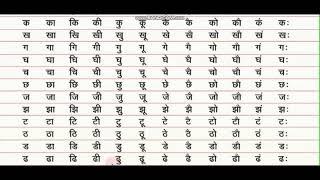 क का कि की कु कू के कै को कौ कं कः
ख खा खि खी खु खू खे खै खो खौ खं खः
ग गा गि गी गु गू गे गै गो गौ गं गः
घ घा घि घी घु घू घे घै घो घौ घं घः
च चा चि ची चु चू चे चै चो चौ चं चः
छ छा छि छी छु छू छे छै छो छौ छं छः
ज जा जि जी जु जू जे जै जो जौ जं जः
झ झा झि झी झु झू झे झै झो झौ झं झः
ट टा टि टी टु टू टे टै टो टौ टं टः
ठ ठा ठि ठी ठु ठू ठे ठै ठो ठौ ठं ठः
ड डा डि डी डु डू डे डै डो डौ डं डः
ढ ढा ढि ढी ढु ढू ढे ढै ढो ढौ ढं ढः